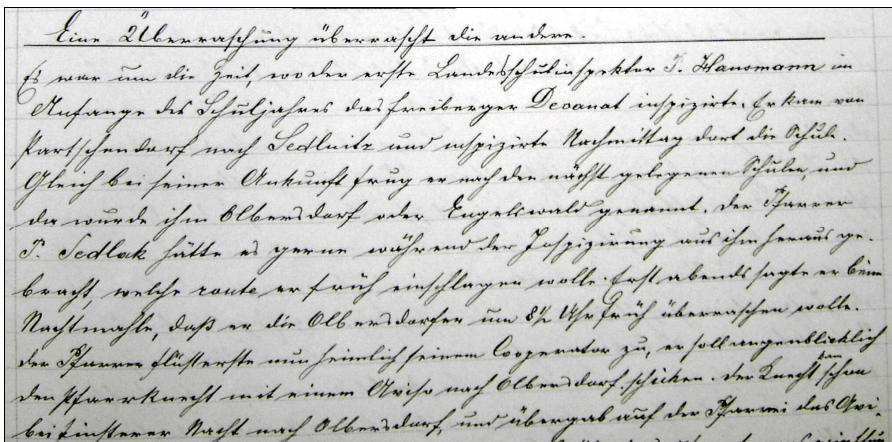 Eine Überraschung überrascht die andere.
Es war um die Zeit, wo der erste Landesschulinspektor P. Hausmann im
Anfange des Schuljahres das freiberger Decanat inspizirte. Er kam von
Partschendorf nach Sedlnitz und inspizirte Nachmittag dort die Schule.
Gleich bei seiner Ankunft frug er nach den nächst gelegenen Schulen, und
da wurde ihm Olbersdorf oder Engelswald genannt. Der Pfarrer
P. Sedlak hätte es gerne während der Inspizirung aus ihm heraus ge-
bracht, welche route er früh einschlagen wolle. Erst abends sagte er beim
Nachtmahle, daß er die Olbersdorfer um 8½ Uhr früh überraschen wolle.
Der Pfarrer flüsterte nun heimlich seinem Cooperator zu, er soll augenblicklich
den Pfarrknecht mit einem Aviso nach Olbersdorf schicken. Der Knecht kam schon
bei finsterer Nacht nach Olbersdorf, und übergab auf der Pfarrei das Avi-